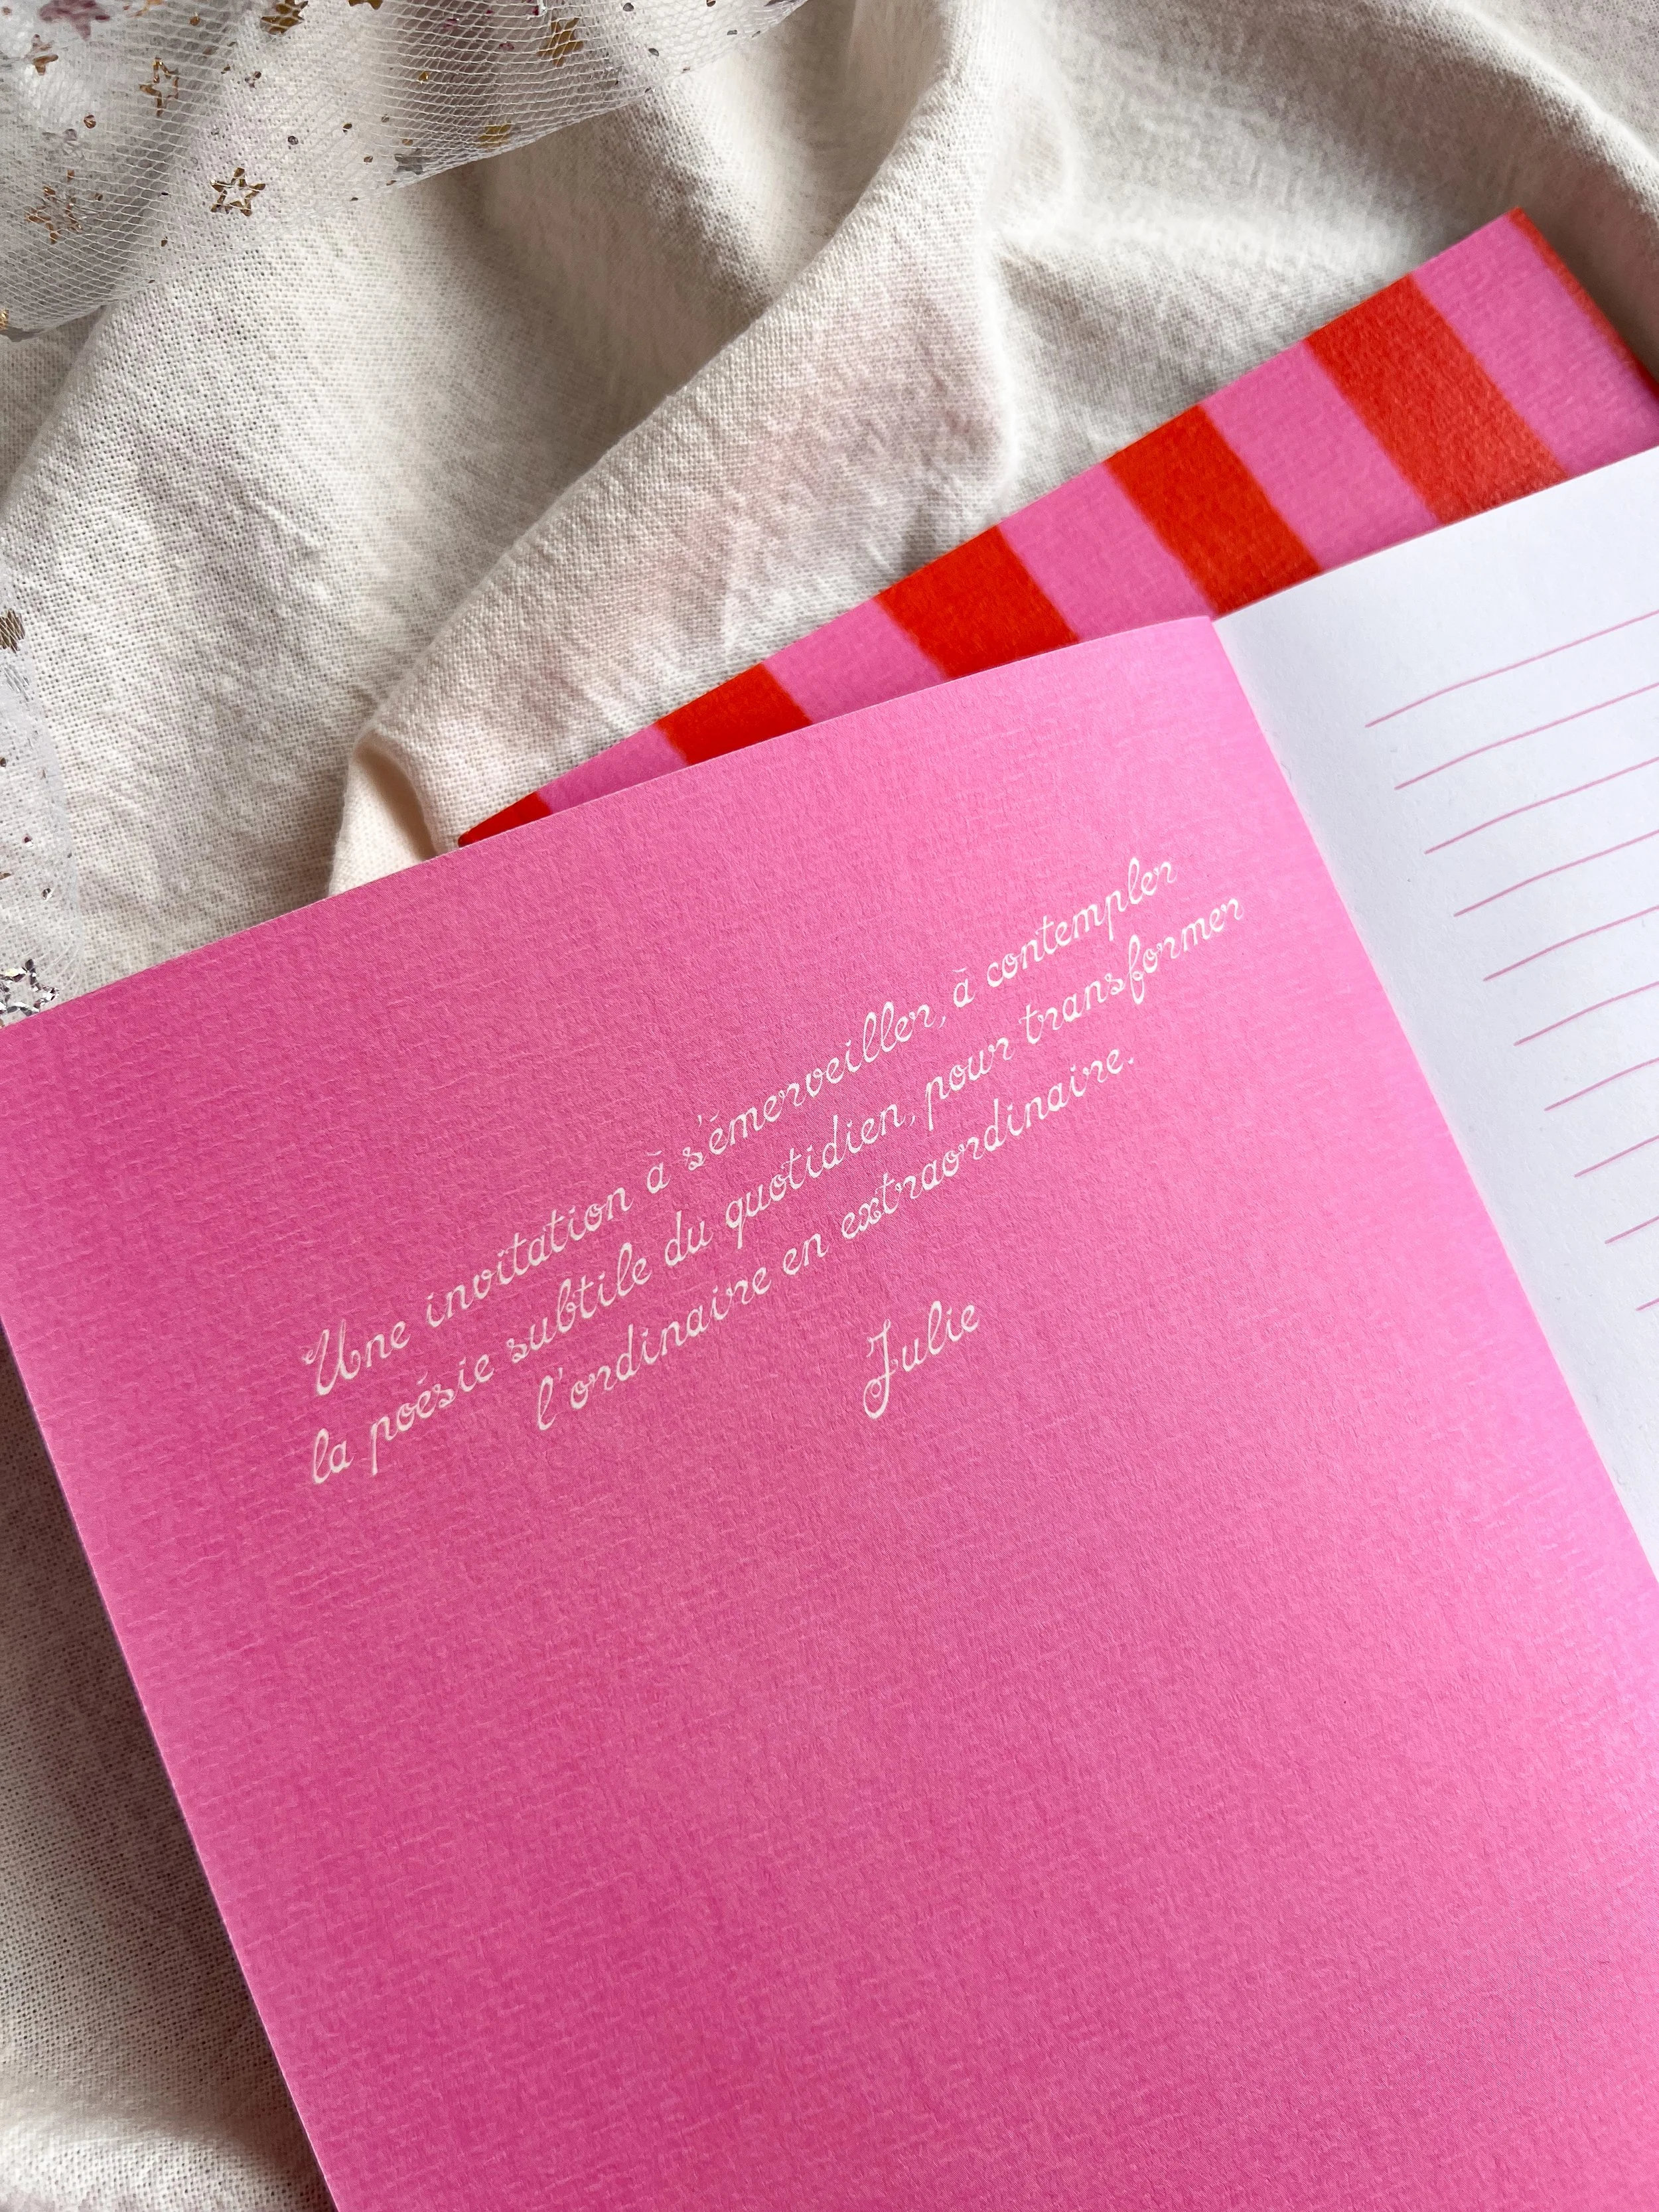 Une invitation à s'émerveiller, à contempler
la poésie subtile du quotidien, pour transformer
l'ordinaire en extraordinaire.
Julie